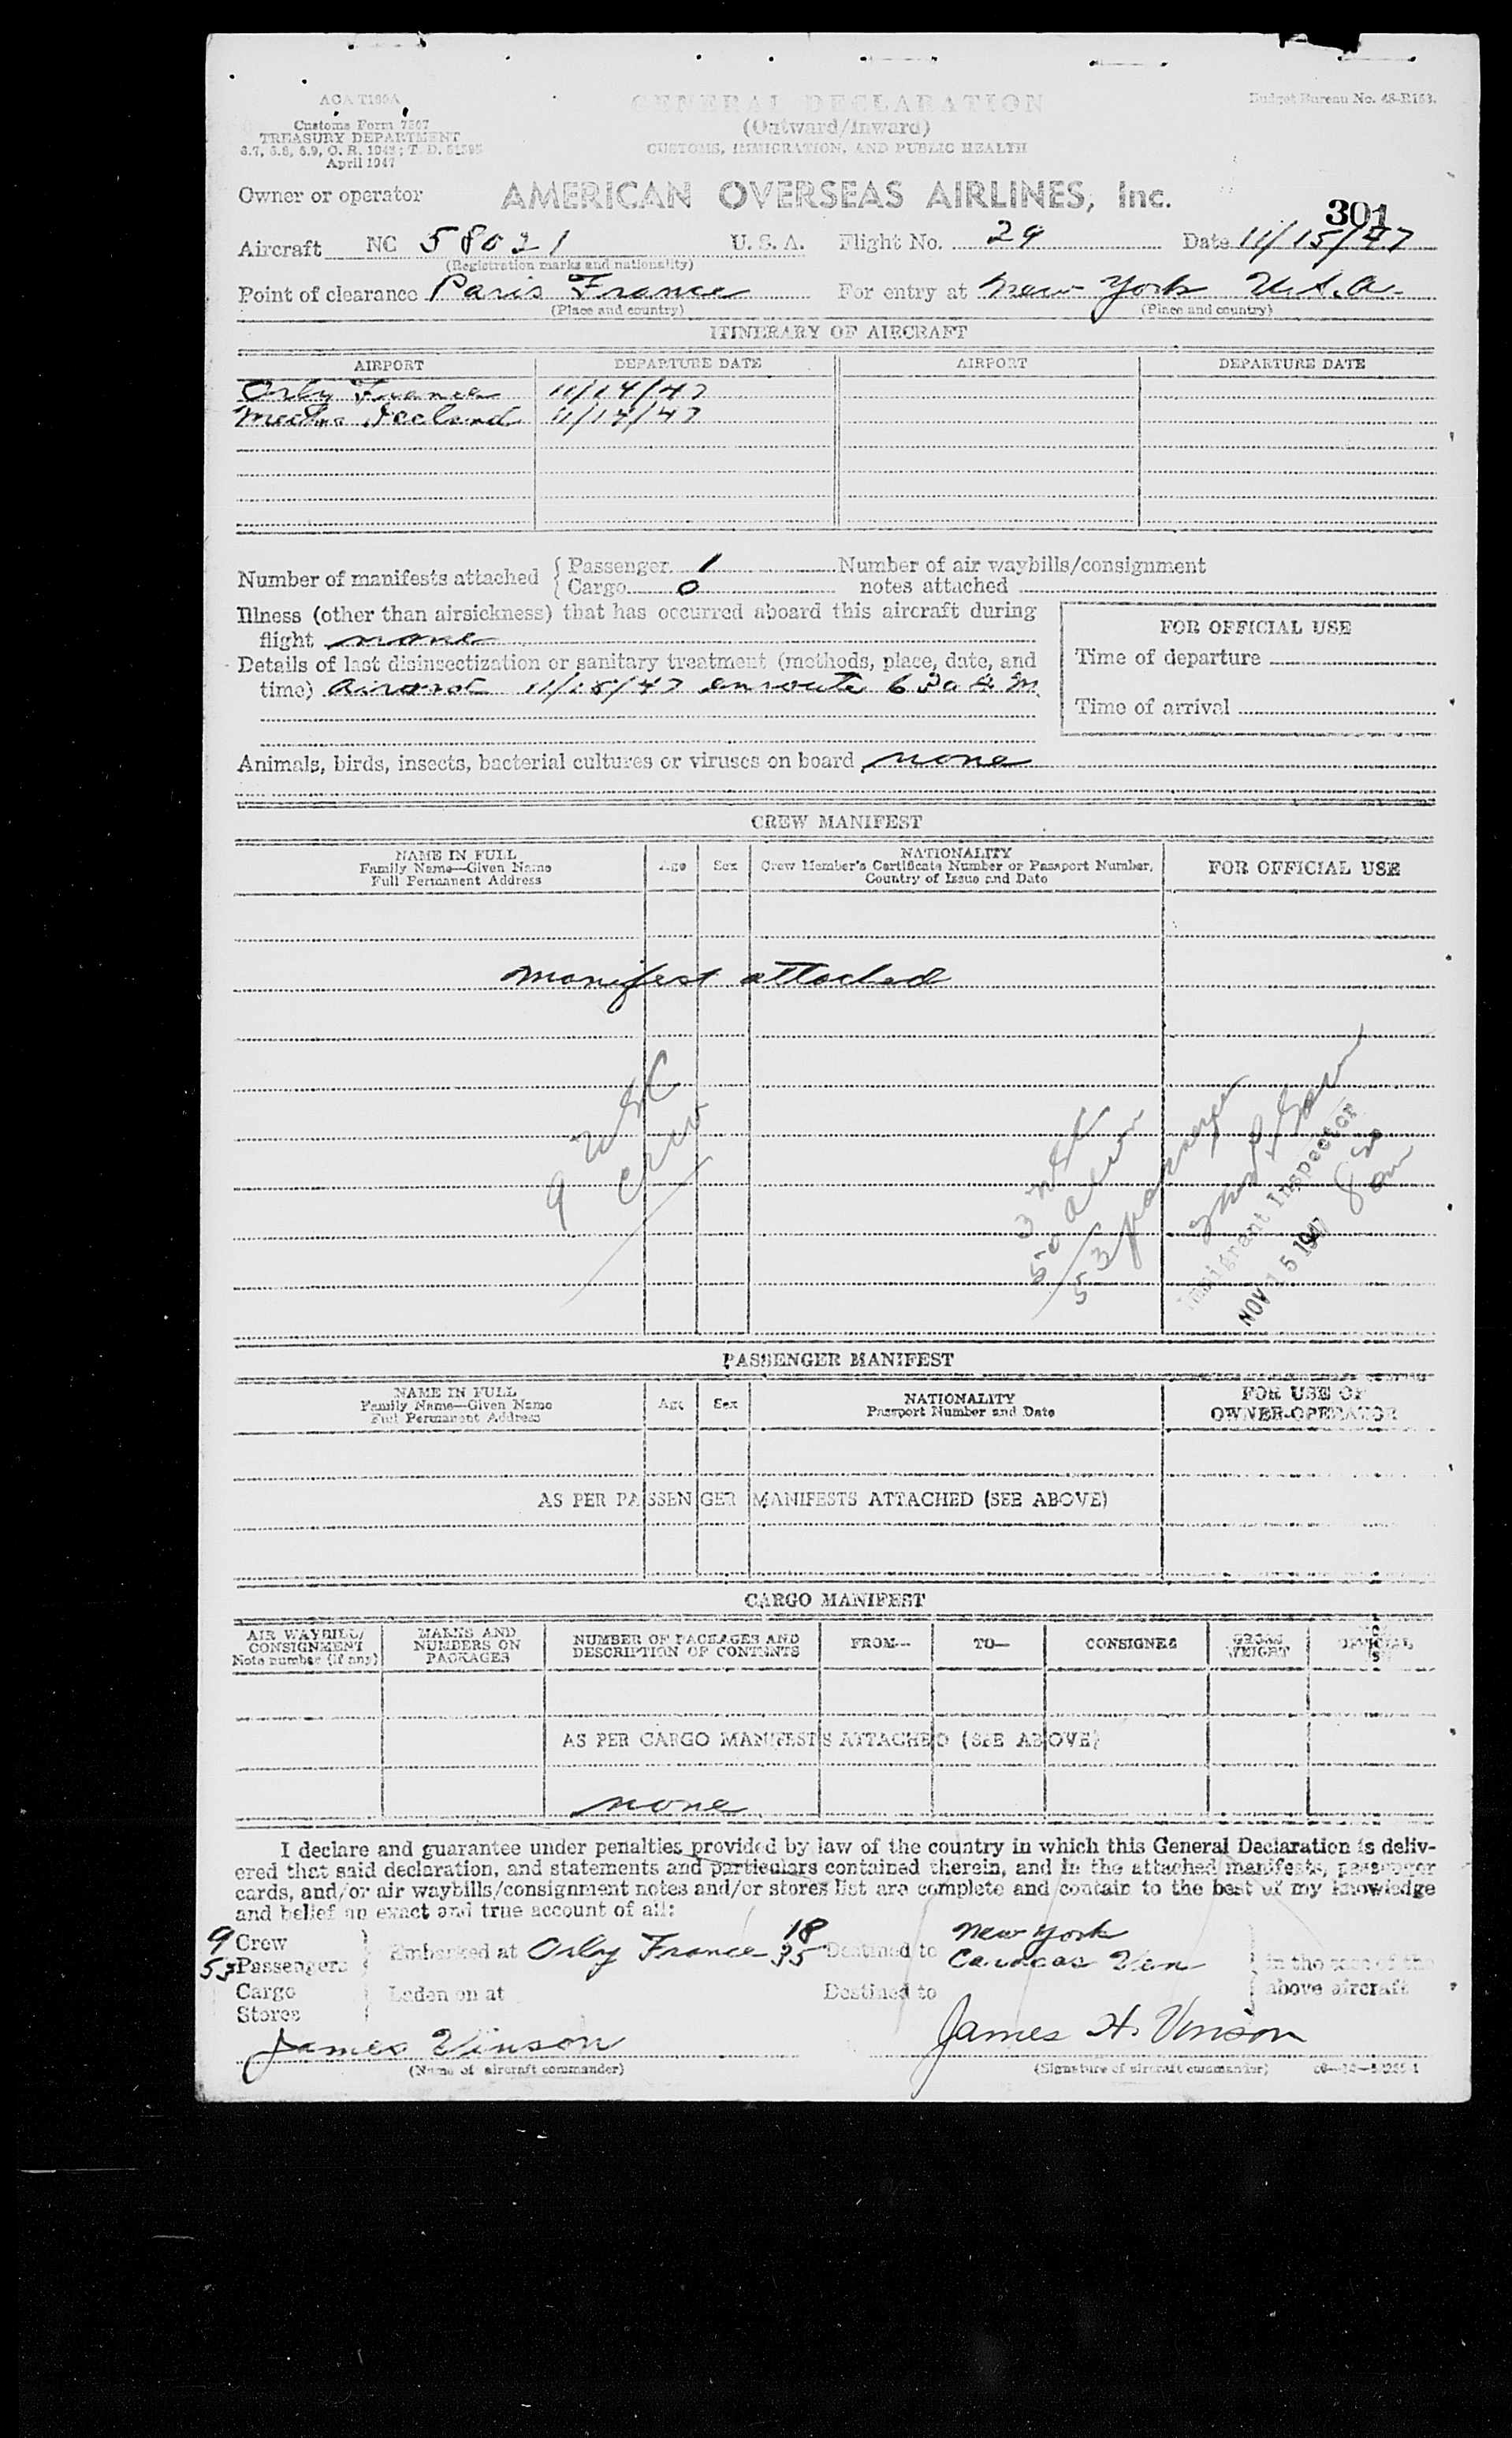 ACA T100A
Customs Form 7507
TREASURY DEPARTMENT
April 1947
GENERAL DECLARATION
(Outward/Inward)
CUSTOMS, IMMIGRATION, AND PUBLIC HEALTH
Budget Bureau No. 48-R153.
Owner or operator AMERICAN OVERSEAS AIRLINES, Inc.
301
Aircraft NC 58021 U. S. A. Flight No. 29 Date 11/15/47
(Registration marks and nationality)
Point of clearance Paris France For entry at New York U.S.A.
(Place and country) (Place and country)
ITINERARY OF AIRCRAFT
AIRPORT DEPARTURE DATE AIRPORT DEPARTURE DATE
Orly France 11/14/47
Meeks Iceland 11/14/47
Number of manifests attached { Passenger 1 Number of air waybills/consignment
Cargo 0 notes attached
Illness (other than airsickness) that has occurred aboard this aircraft during
flight none
FOR OFFICIAL USE
Details of last disinsectization or sanitary treatment (methods, place, date, and
time) 11/15/47 enroute 630 A M
Time of departure
Time of arrival
Animals, birds, insects, bacterial cultures or viruses on board none
CREW MANIFEST
NAME IN FULL
Family Name—Given Name
Full Permanent Address
Age Sex
NATIONALITY
Crew Member's Certificate Number or Passport Number,
Country of Issue and Date
FOR OFFICIAL USE
manifest attached
9 USC
crew
3 USC
50 alien
53 passenger
Immigrant Inspector
NOV 15 1947
PASSENGER MANIFEST
NAME IN FULL
Family Name—Given Name
Full Permanent Address
Age Sex
NATIONALITY
Passport Number and Date
FOR USE OF
OWNER-OPERATOR
AS PER PASSENGER MANIFESTS ATTACHED (SEE ABOVE)
CARGO MANIFEST
AIR WAYBILL/
CONSIGNMENT
Note number (if any)
MARKS AND
NUMBERS ON
PACKAGES
NUMBER OF PACKAGES AND
DESCRIPTION OF CONTENTS
FROM— TO— CONSIGNEE
GROSS
WEIGHT
OFFICIAL
AS PER CARGO MANIFESTS ATTACHED (SEE ABOVE)
none
I declare and guarantee under penalties provided by law of the country in which this General Declaration is deliv-
ered that said declaration, and statements and particulars contained therein, and in the attached manifests, passenger
cards, and/or air waybills/consignment notes and/or stores list are complete and contain to the best of my knowledge
and belief an exact and true account of all:
9 Crew 18 New York
53 Passengers Embarked at Orly France 35 Destined to Caracas Ven in the case of the
Cargo Laden on at Destined to above aircraft
Stores
James Vinson James H. Vinson
(Name of aircraft commander) (Signature of aircraft commander)